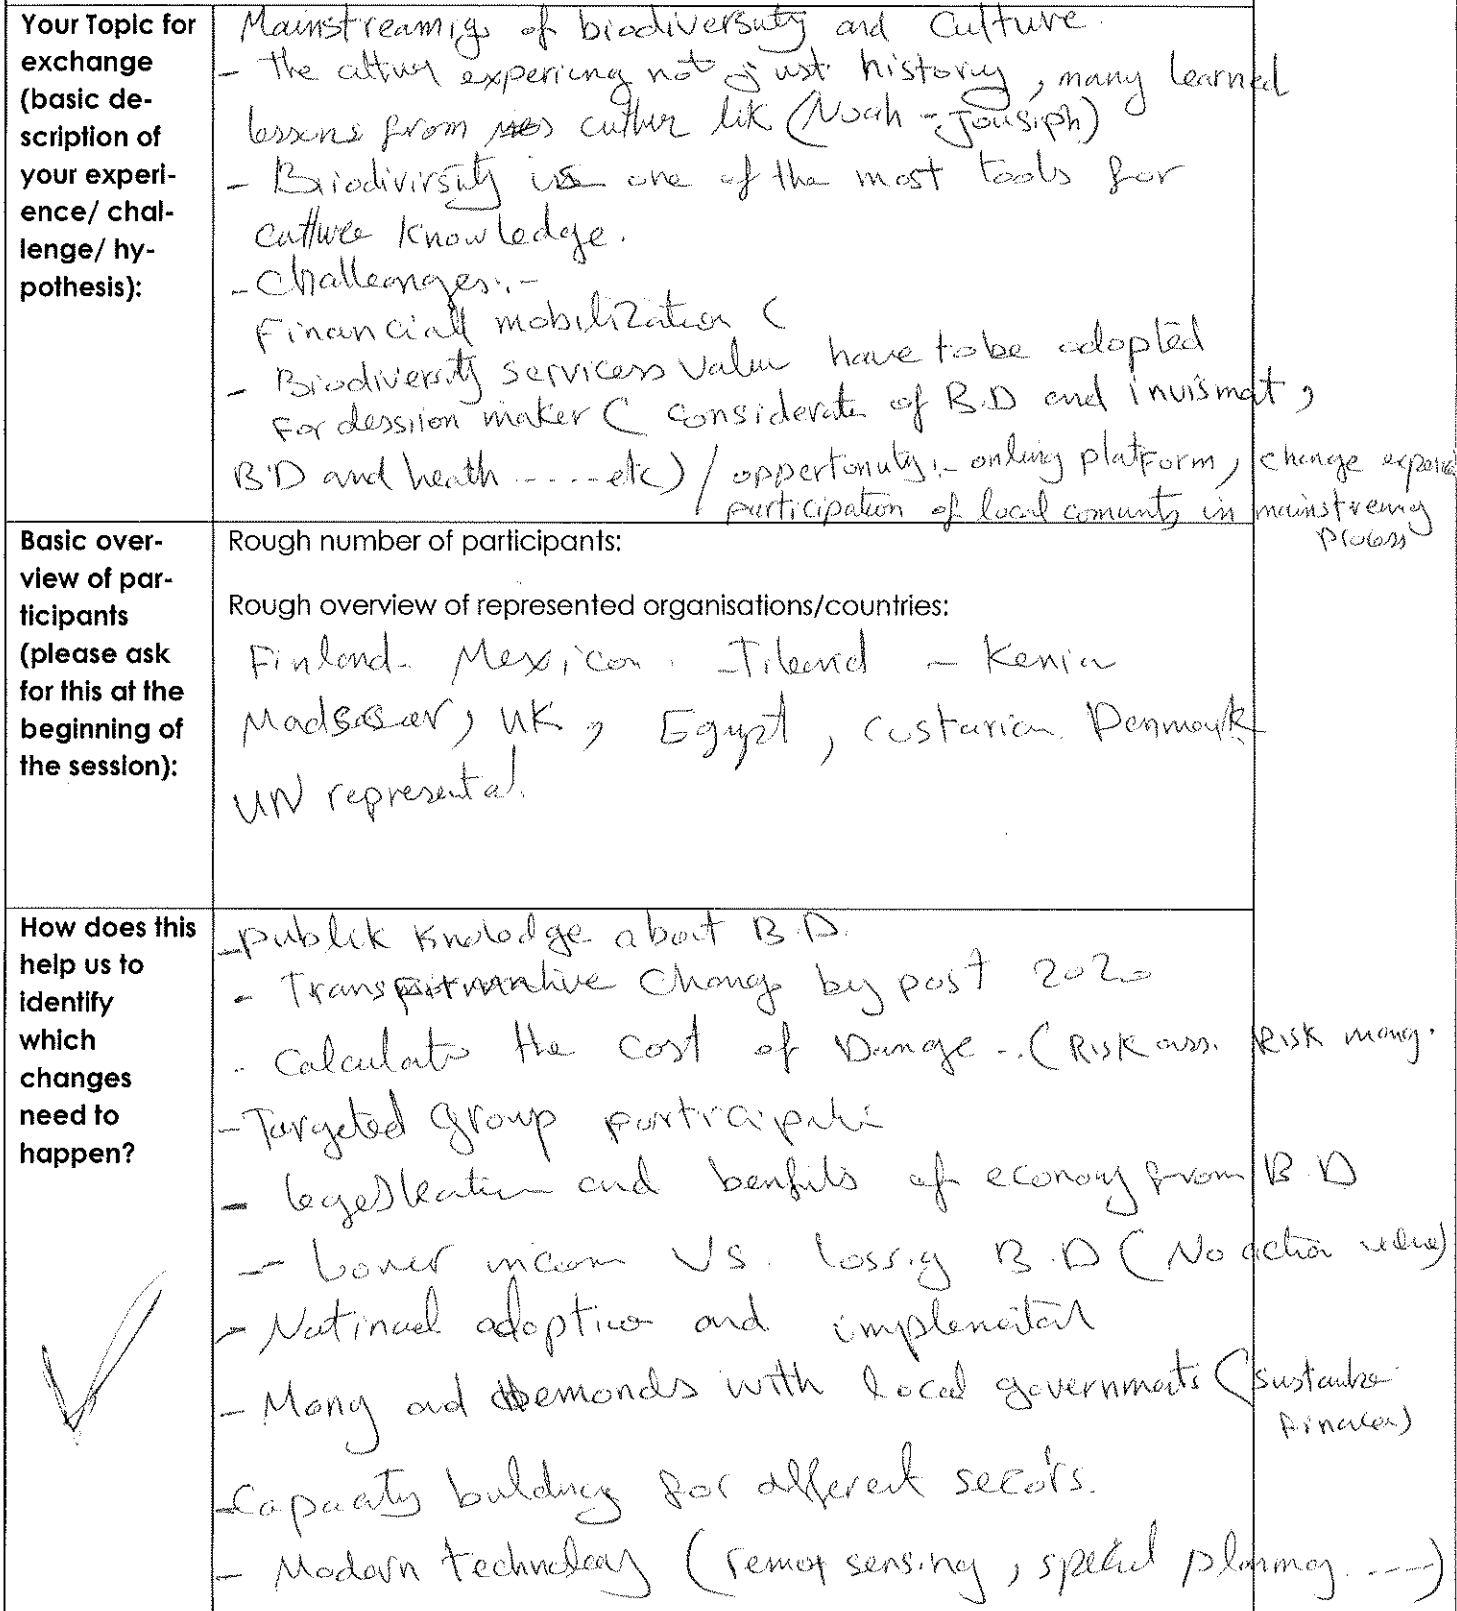 Your Topic for
exchange
(basic de-
scription of
your experi-
ence/ chal-
lenge/ hy-
pothesis):
Mainstreamig of biodiversuty and Culture.
- The cultur expering not just history, many learned
lessens from cuthur lik (Noah - Jousiph)
- Biodivirsity is one of the most tools for
culture Knowledge.
- Challeanges:-
Financiall mobilization (
- Biodiversity servicess value have to be adopted
For dession maker ( considerate of B.D and invismat,
B.D and heath ..... etc) / oppertonuty:- onling platForm, change
participation of local comunty in mainstreming
process
Basic over-
view of par-
ticipants
(please ask
for this at the
beginning of
the session):
Rough number of participants:
Rough overview of represented organisations/countries:
Finland - Mexico - - Kenia
UK, Egypt, Custarica Denmark
UN represental.
How does this
help us to
identify
which
changes
need to
happen?
- publik Knolodge about B.D.
- Change by post 2020
- Calculate the cost of Damge -.( Risk ass. Risk mang.
- Targeted group
- and benfits of economy from B.D
- Lower incom VS. lossig B.D ( No action value)
- Natinael adoption and
- Mony and Demonds with local governmets (
- Capacity bulducg for different secors.
- Modarn technology ( remot sensing, planning ....)